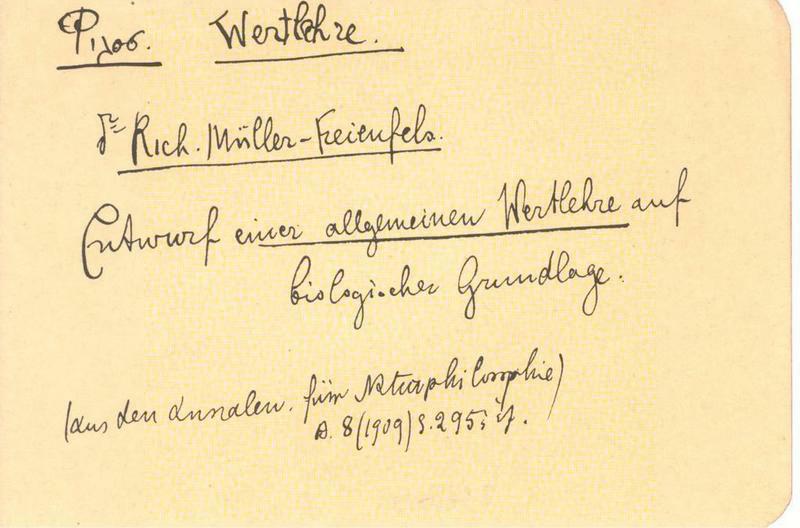 Φιλοσ. Wertlehre.
Dr Rich. Müller-Freienfels.
Entwurf einer allgemeinen Wertlehre auf
biologischer Grundlage.
(aus den Annalen. für Naturphilosophie)
8 (1909) S. 295